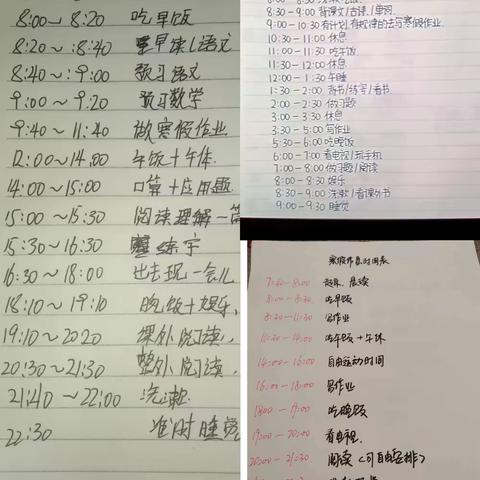 8:00~8:20 吃早饭
8:20~:8:40 早读/语文
8:40~:9:00 预习语文
9:00~9:20 预习数学
9:40~11:40 做寒假作业
12:00~14:00 午饭+午休
14:00~15:00 口算+应用题
15:00~15:30 阅读理解一篇
15:30~16:30 练字
16:30~18:00 出去玩一会儿
18:10~19:10 晚饭+娱乐
19:10~2020 课外阅读
20:30~21:30 整外阅读
21:40~22:00 洗漱
22:30 准时睡觉
8:30-9:00 背课文/古诗/单词
9:00-10:30 有计划有规律的去写寒假作业
10:30-11:00 休息
11:00-11:30 吃午饭
11:30-12:00 休息
12:00-1:30 午睡
1:30-2:00 背书/练字/看书
2:00-2:30 做习题
3:00-3:30 休息
3:30-5:00 写作业
5:30-6:00 吃晚饭
6:00-7:00 看电视/玩手机
7:00-8:00 做习题/阅读
8:00-8:30 娱乐
8:30-9:00 洗漱/看课外书
9:00-9:30 睡觉
寒假作息时间表
7:30-8:00 起床、晨读
8:00-8:30 吃早饭
8:30-11:30 写作业
11:30-14:00 吃午饭+午休
14:00-16:00 自由运动时间
16:00-18:00 写作业
18:00-19:00 吃晚饭
19:00-20:00 看电视
20:00-21:30 阅读(可自由安排)